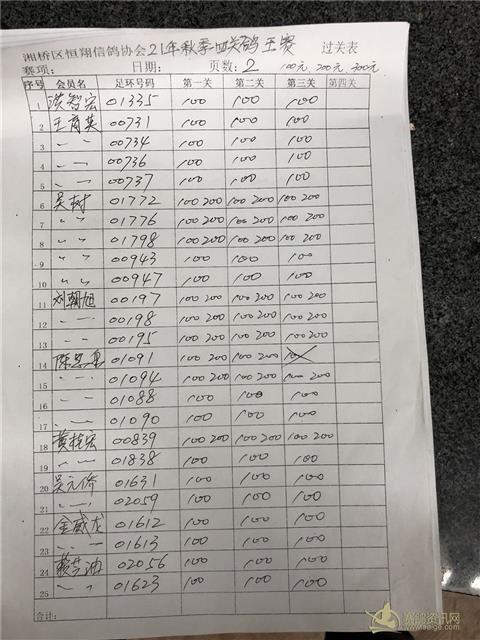 湘桥区恒翔信鸽协会21年秋季四关鸽王赛 过关表
赛项: 日期: 页数: 2 100元, 200元, 300元
序号 会员名 足环号码 第一关 第二关 第三关 第四关
1 洪智宏 01335 100 100 100
2 王育英 00731 100 100 100
3 〃 〃 00734 100 100 100
4 〃 〃 00736 100 100 100
5 〃 〃 00737 100 100 100
6 吴树 01772 100 200 100 200 100 200
7 〃 〃 01776 100 200 100 200 100 200
8 〃 〃 01798 100 200 100 200 100 200
9 〃 〃 00943 100 100 100
10 〃 〃 00947 100 100 100
11 刘朝旭 00197 100 200 100 200 100 200
12 〃 〃 00198 100 200 100 200 100 200
13 〃 〃 00195 100 200 100 200 100 200
14 陈 01091 100 200 100 200
15 〃 〃 01094 100 200 100 200 100 200
16 〃 〃 01088 100 100 100
17 〃 〃 01090 100 100 100
18 黄桂宏 00839 100 200 100 200 100 200
19 〃 〃 01838 100 100 100
20 吴元侨 01631 100 100 100
21 〃 〃 02059 100 100 100
22 金威龙 01612 100 100 100
23 〃 〃 01613 100 100 100
24 赖芳 02056 100 100 100
25 〃 〃 01623 100 100 100
合计:
赛鸽资讯网
www.saige.com